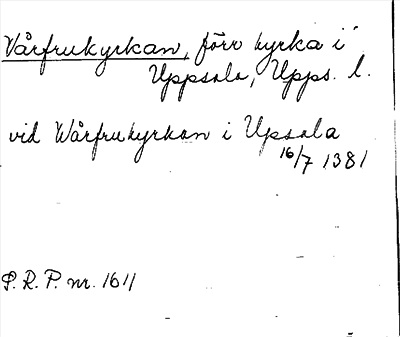 Vårfrukyrkan, förr kyrka i
Uppsala, Upps. l.
vid Wårfrukyrkan i Upsala
16/7 1381
S.R.P. nr. 1611